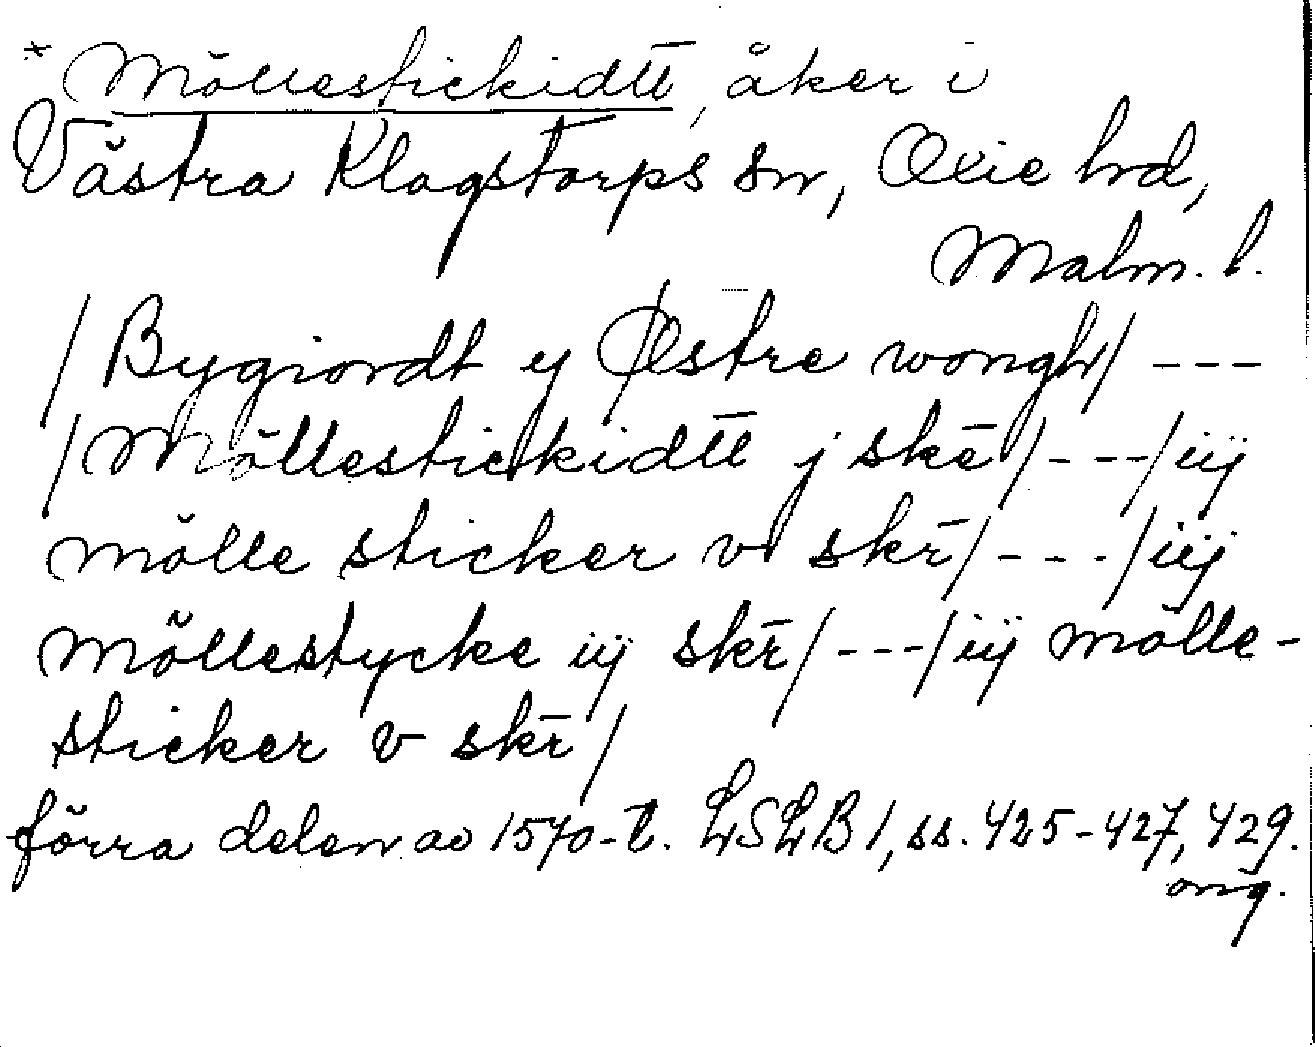 * Möllestickidtt, åker i
Västra Klagstorps sn, Oxie hd,
Malm. l.
/ Bygiordt y Østre wongh/ ---
/ Möllestickidtt j skē/ ---/ iij
mölle sticker v skr̄/ ---/ iij
möllestycke iij skr̄/ ---/ iij mölle-
sticker v skr̄/
förra delen av 1570-t. LSLB 1, ss. 425-427, 429.
orig.